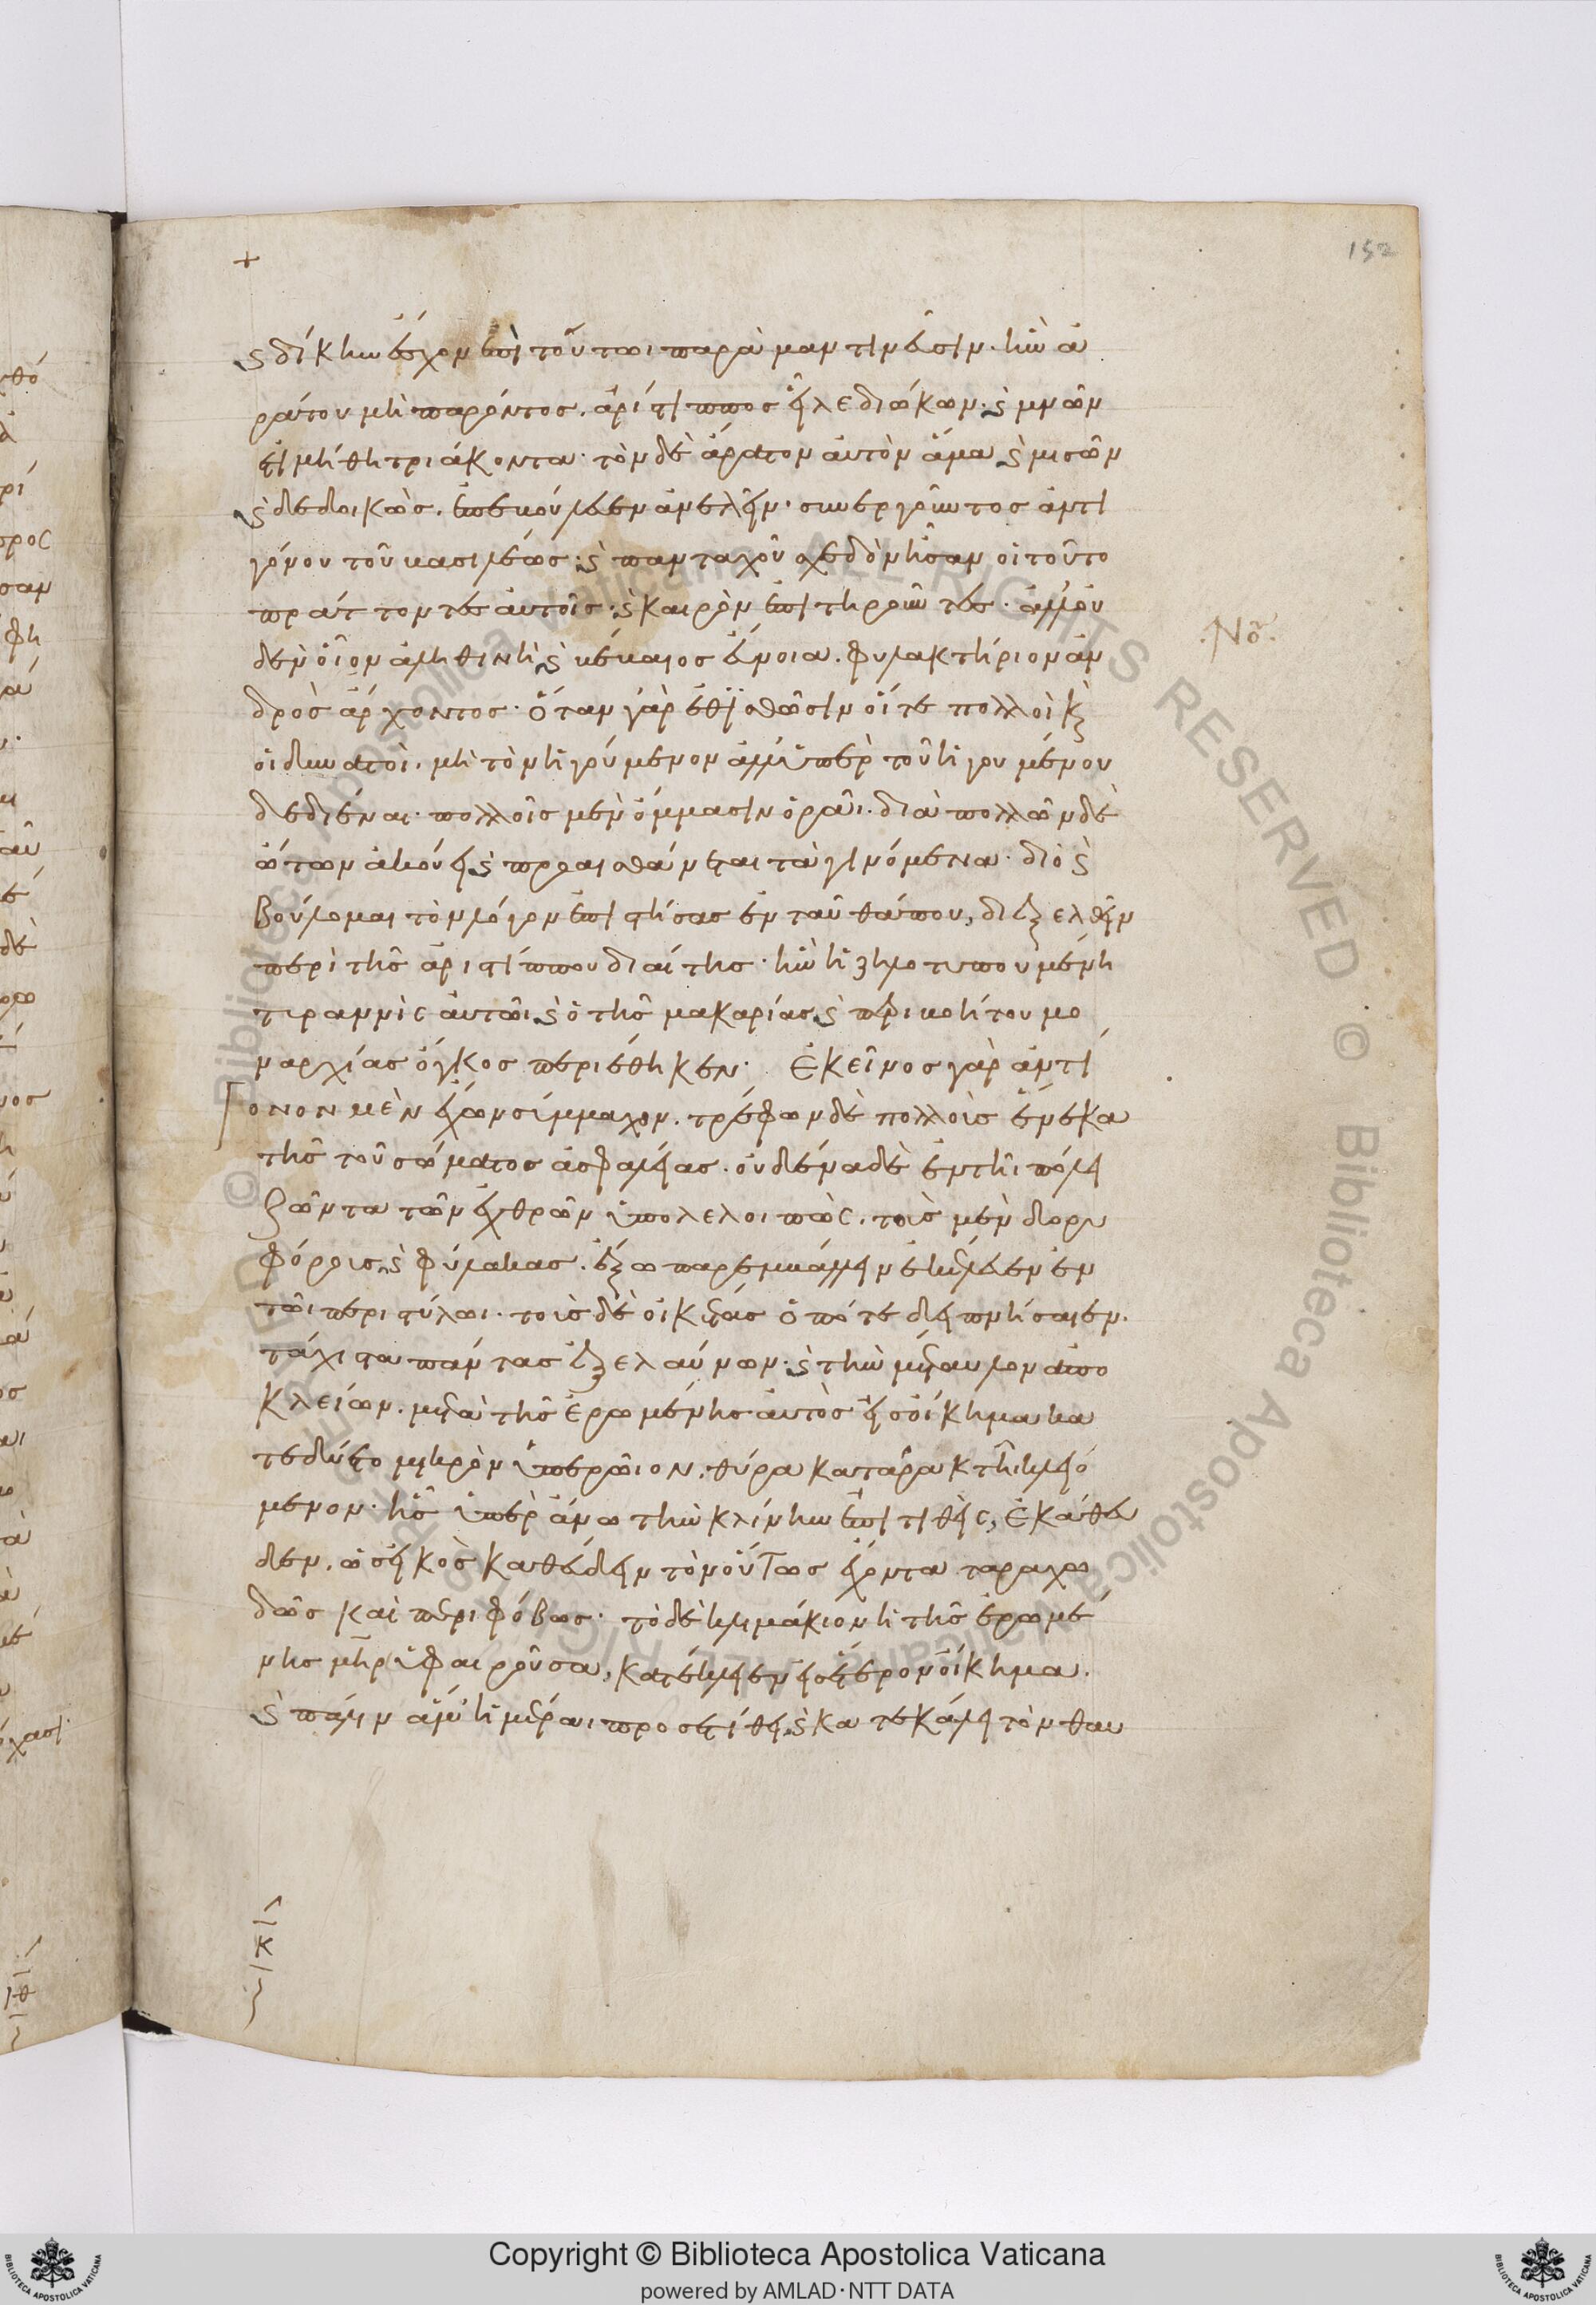 +
152
καὶ δίκην ἔσχον ἐπὶ τούτωι παρὰ μαντινεῦσιν· ἣν ἀ
ράτου μὴ παρόντος, ἀρίστιππος εἷλε διώκων· καὶ μνῶν
ἐτιμήθη τριάκοντα· τὸν δὲ ἄρατον αὐτὸν ἅμα καὶ μισῶν
καὶ δεδοικὼς, ἐπεβούλευεν ἀνελεῖν· συνεργοῦντος ἀντι
γόνου τοῦ βασιλέως· καὶ πανταχοῦ σχεδὸν ἦσαν οἱ τοῦτο
πράττοντες αὐτοῖς· καὶ καιρὸν ἐπιτηροῦντες· ἀλλ' οὐ
δὲν οἷον ἀληθινὴ καὶ βέβαιος εὔνοια. φυλακτήριον ἀν
δρὸς ἄρχοντος· ὅταν γὰρ ἐθισθῶσιν οἵ τε πολλοὶ καὶ
οἱ δυνατοὶ, μὴ τὸν ἡγούμενον ἀλλ' ὑπὲρ τοῦ ἡγουμένου
δεδιέναι· πολλοῖς μὲν ὄμμασιν ὁρᾶι· διὰ πολλῶν δὲ
ὤτων ἀκούει καὶ προαισθάνεται τὰ γινόμενα· διὸ καὶ
βούλομαι τὸν λόγον ἐπιστήσας ἐνταῦθά που, διεξελθεῖν
περὶ τῆς ἀριστίππου διαίτης· ἣν ἡ ζηλοτυπουμένη
τυραννὶς αὐτῶι καὶ ὁ τῆς μακαρίας καὶ περιβοήτου μο
ναρχίας ὄγκος περιέθηκεν· Ἐκεῖνος γὰρ ἀντί
Γονον μὲν ἔχων σύμμαχον, τρέφων δὲ πολλοὺς ἕνεκα
τῆς τοῦ σώματος ἀσφαλείας· οὐδένα δὲ ἐν τῆι πόλει
ζῶντα τῶν ἐχθρῶν ὑπολελοιπὼς, τοὺς μὲν δορυ
φόρους καὶ φύλακας, ἔξω παρεμβάλλειν ἐκέλευεν ἐν
τῶι περιστύλωι· τοὺς δὲ οἰκέτας ὁπότε δειπνήσαιεν·
τάχιστα πάντας ἐξελαύνων· καὶ τὴν μέταυλον ἀπο
κλείων, μετὰ τῆς ἐρωμένης αὐτὸς εἰς οἴκημα κα
τεδύετο μικρὸν ὑπερῶιον, θύρα καταρακτῆι κλειό
μενον· ἧς ὑπὲρ ἄνω τὴν κλίνην ἐπιτιθεὶς, ἐκάθευ
δεν, ὡς εἰκὸς καθεύδειν τὸν οὕτως ἔχοντα ταραχω
δῶς καὶ περιφόβως· τὸ δὲ κλιμάκιον ἡ τῆς ἐρωμέ
νης μήτηρ ὑφαιροῦσα, κατέκλειεν εἰς ἕτερον οἴκημα.
καὶ πάλιν ἅμ' ἡμέραι προσετίθει, καὶ κατεκάλει τὸν θαυ
κ
Copyright © Biblioteca Apostolica Vaticana
powered by AMLAD·NTT DATA